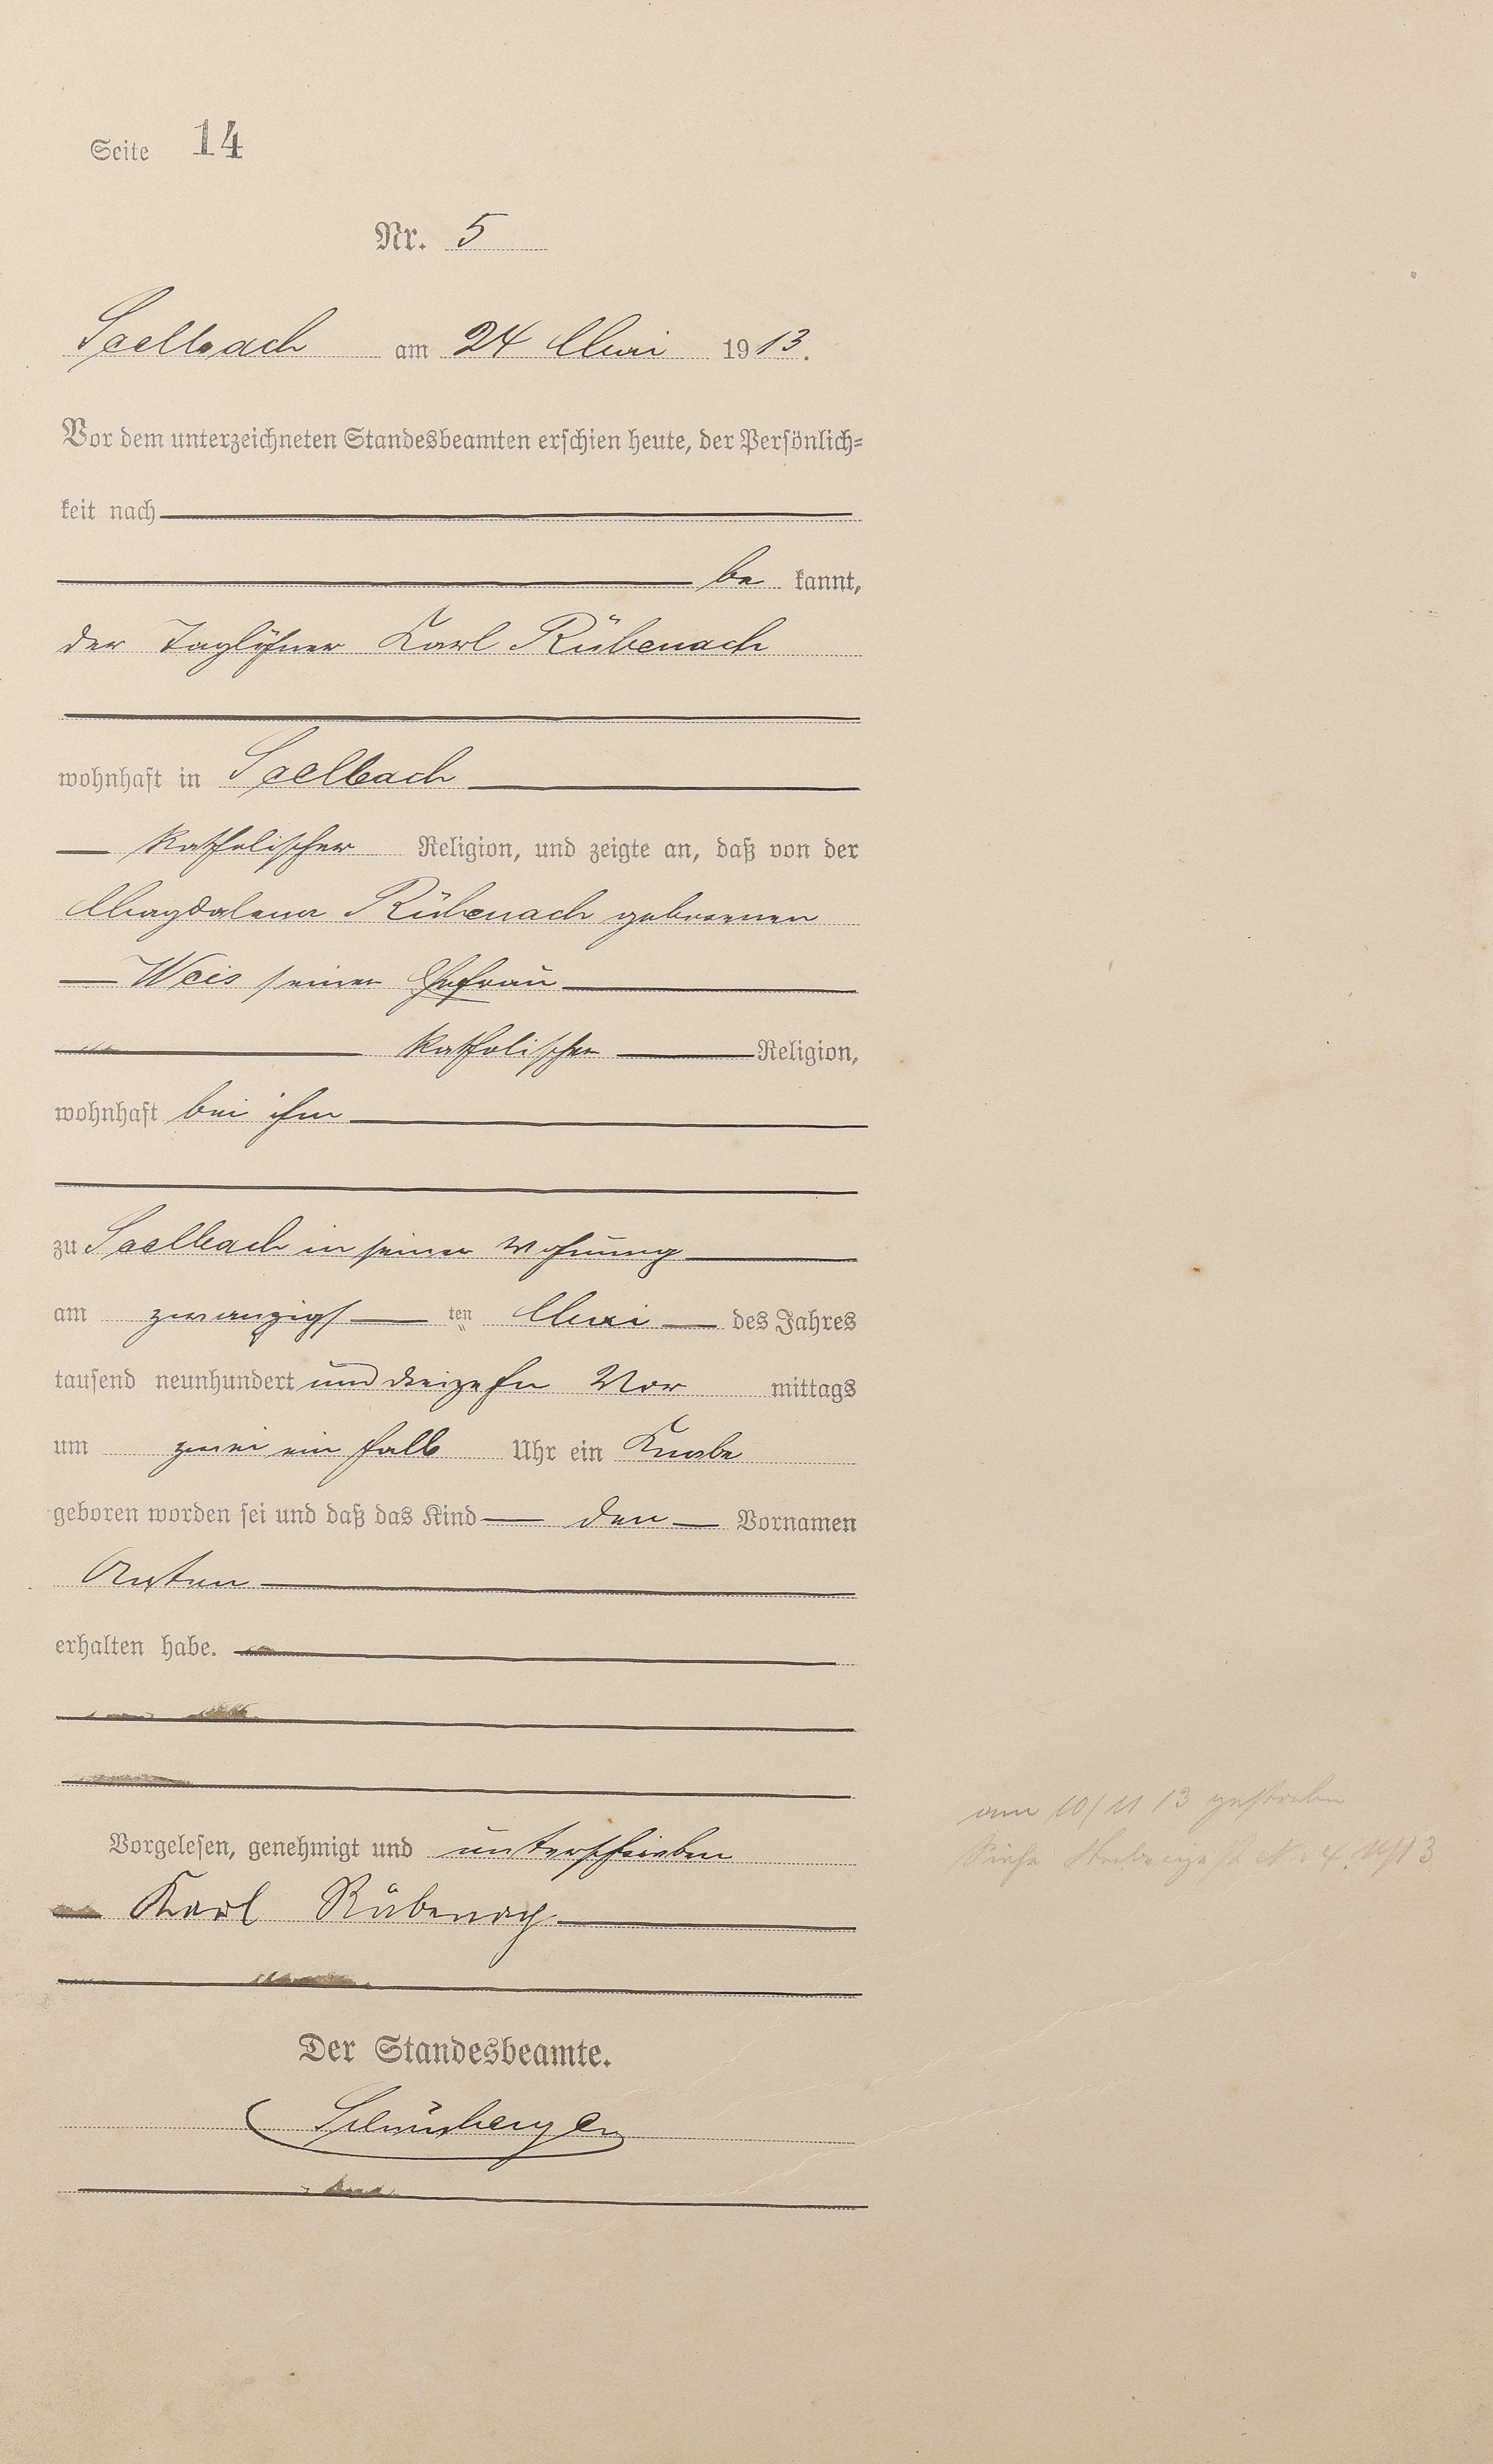 Seite 14
Nr. 5
Seelbach am 24 Mai 1913.
Vor dem unterzeichneten Standesbeamten erschien heute, der Persönlich=
keit nach
be kannt,
der Taglöhner Karl Rübenach
wohnhaft in Seelbach
katholischer Religion, und zeigte an, daß von der
Magdalena Rübenach geborenen
Weis seiner Ehefrau
katholischer Religion,
wohnhaft bei ihm
zu Seelbach in seiner Wohnung
am zwanzigs ten Mai des Jahres
tausend neunhundert und dreizehn Vor mittags
um zwei ein halb Uhr ein Knabe
geboren worden sei und daß das Kind den Vornamen
Anton
erhalten habe.
Vorgelesen, genehmigt und unterschrieben
Karl Rübenach
am 10/11 13 gestorben
Siehe N. 4
Der Standesbeamte.